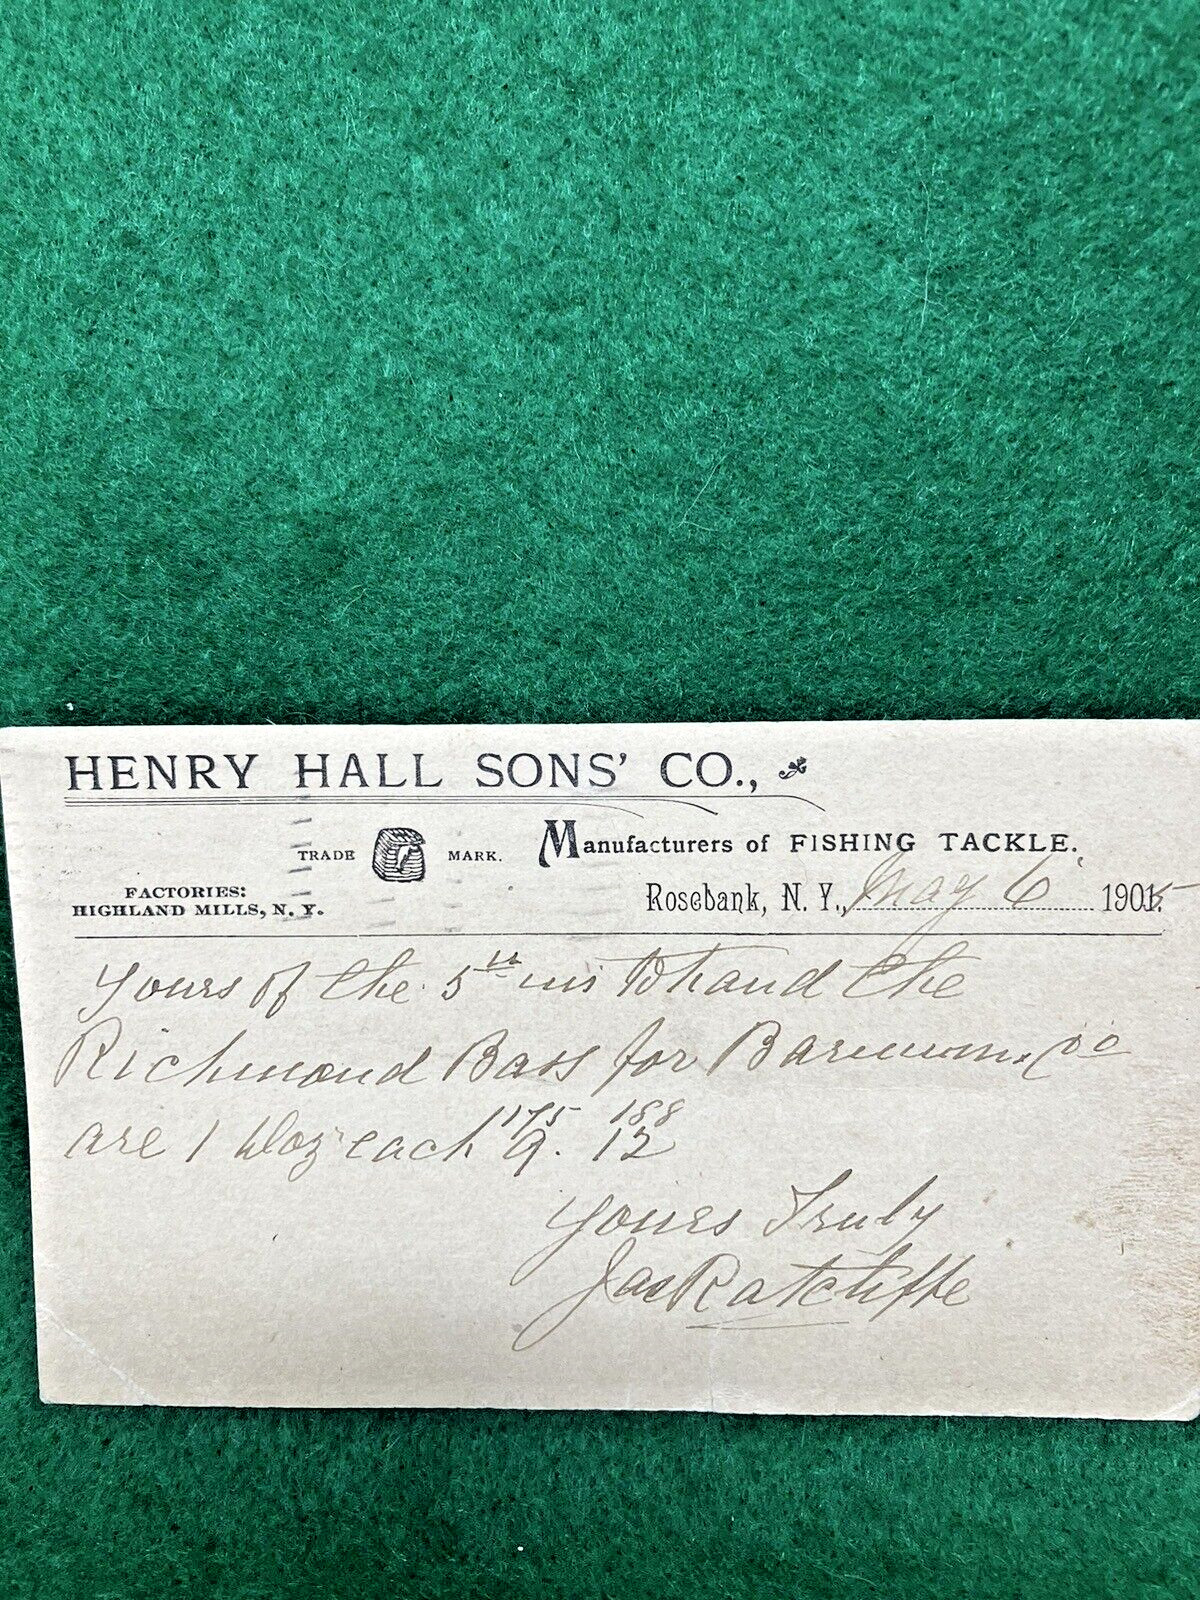 HENRY HALL SONS' CO.,
TRADE MARK.
Manufacturers of FISHING TACKLE.
FACTORIES:
HIGHLAND MILLS, N. Y.
Rosebank, N. Y., May 6 1905
Yours of the 5th ins to hand the
Richmond Bass for Co
are 1 Doz each 9. 12
1175 188
Yours Truly
Jas Ratcliffe